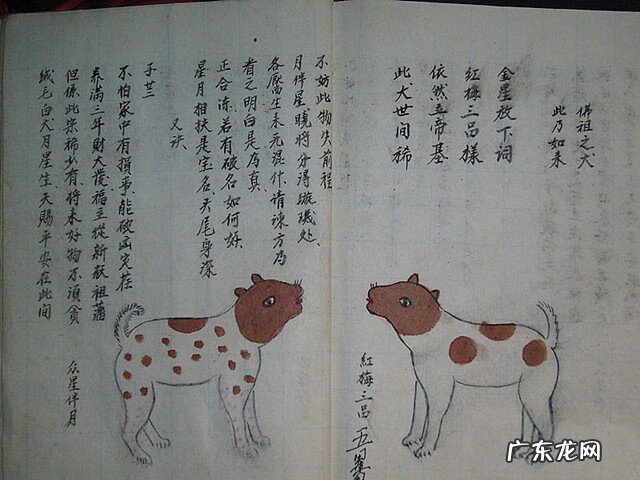 佛祖之犬
此乃如来
金星放下词
红梅三品樣
依然五帝基
此犬世间稀
红梅三品
五
不妨此物失前程
月伴星晚将分得
处
各
生来无混什
方乃
看之明白是為真
正合
若有破名如何好
星月相扶是宝名
天尾身深
又诀
不怕家中有損
能破凶
在
养满三年财大發福主從新
祖
但係此
稀少有
将来好物不須貪
絨毛白犬月星生天賜平安在此间
众星伴月
广东龙网